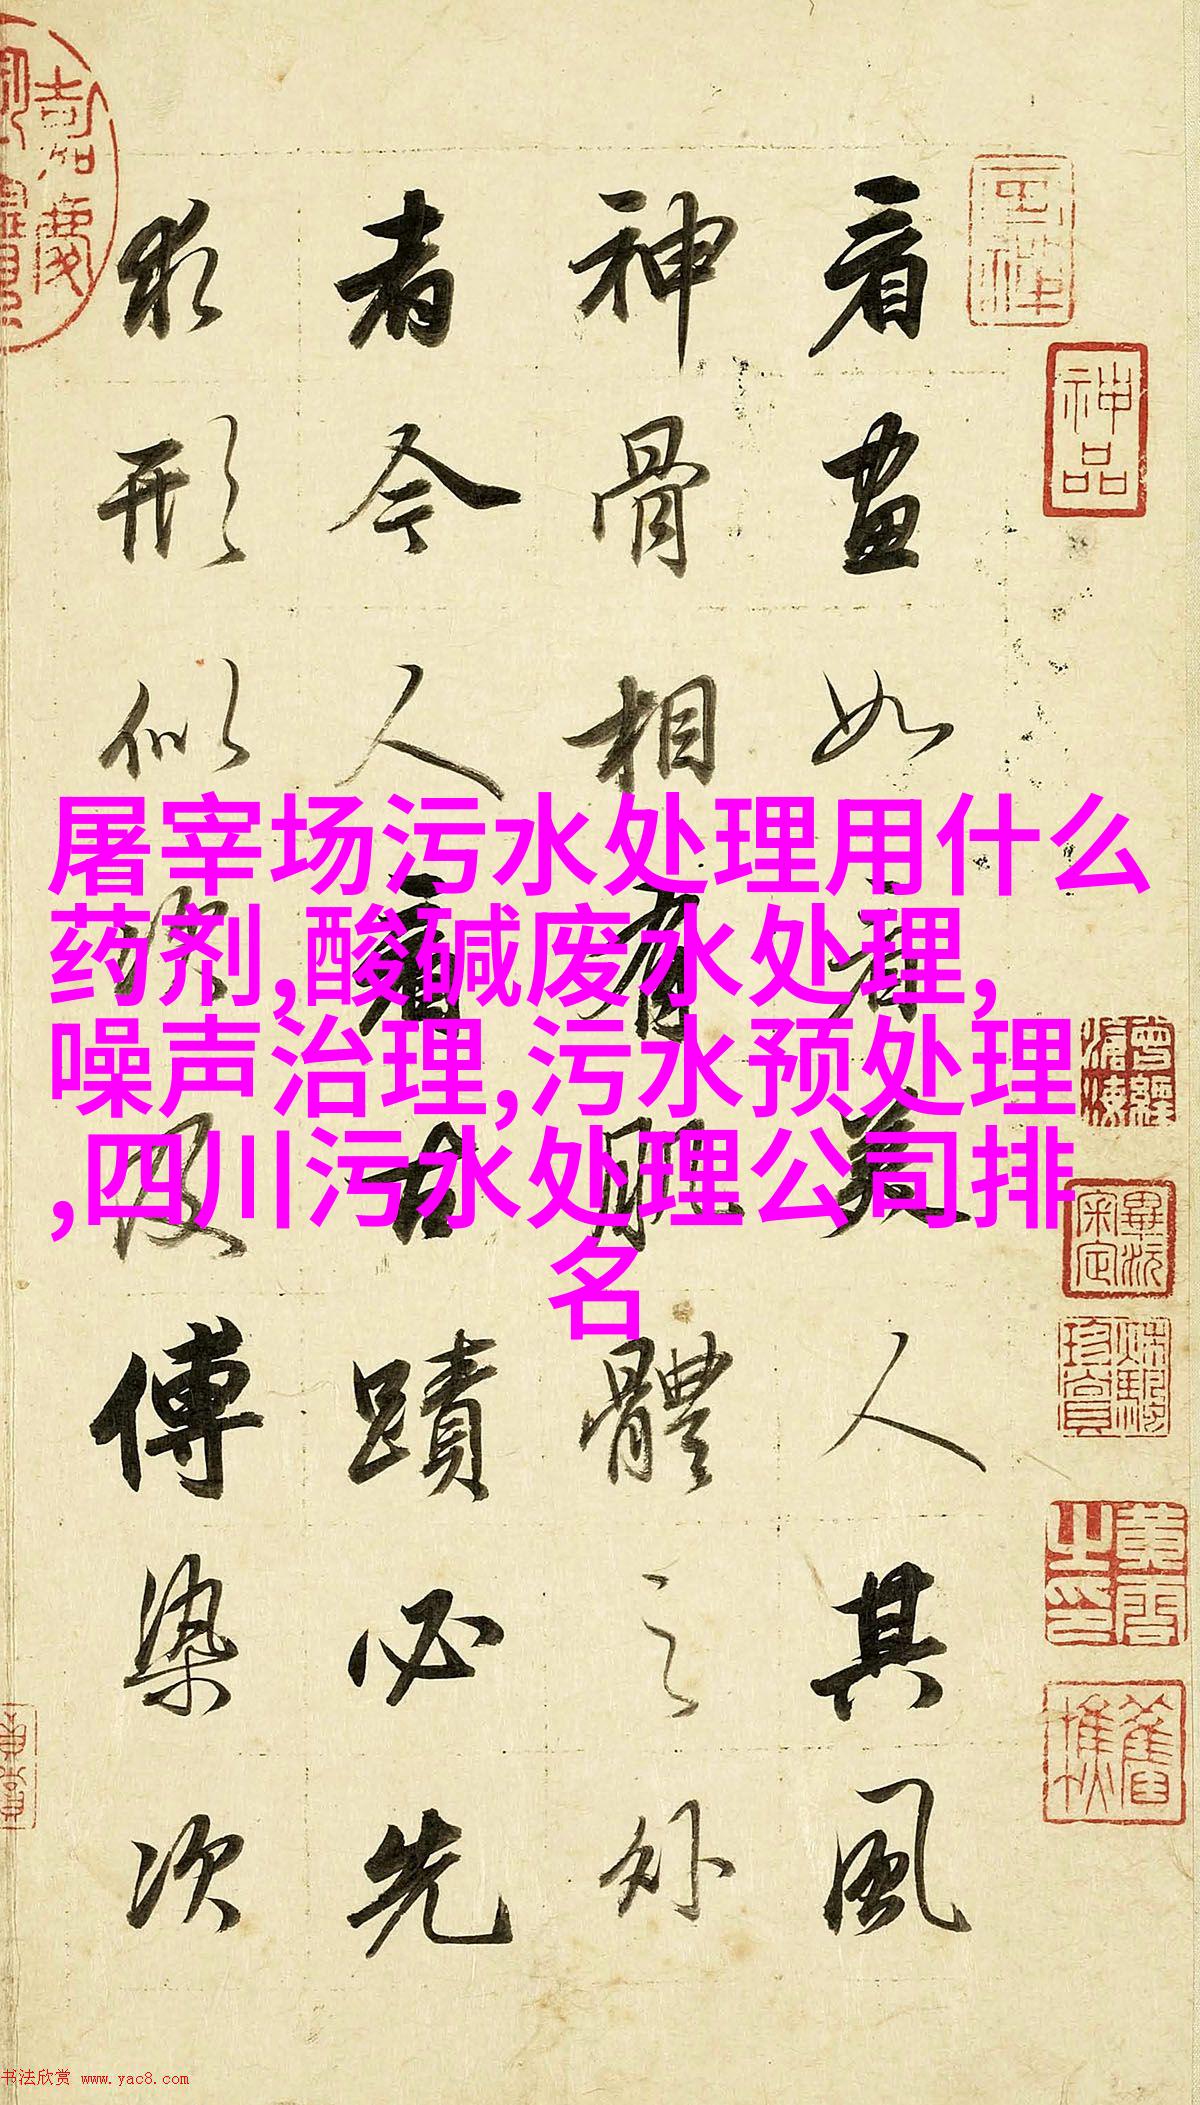 屠宰场污水处理用什么
药剂,酸碱废水处理,
噪声治理,污水预处理
,四川污水处理公司排
名
看畫如看美人其風
神骨相有肌體之外
者今人看古蹟必先
求形似次及傅染次
神品
嘉慶
书法欣赏 www.yac8.com